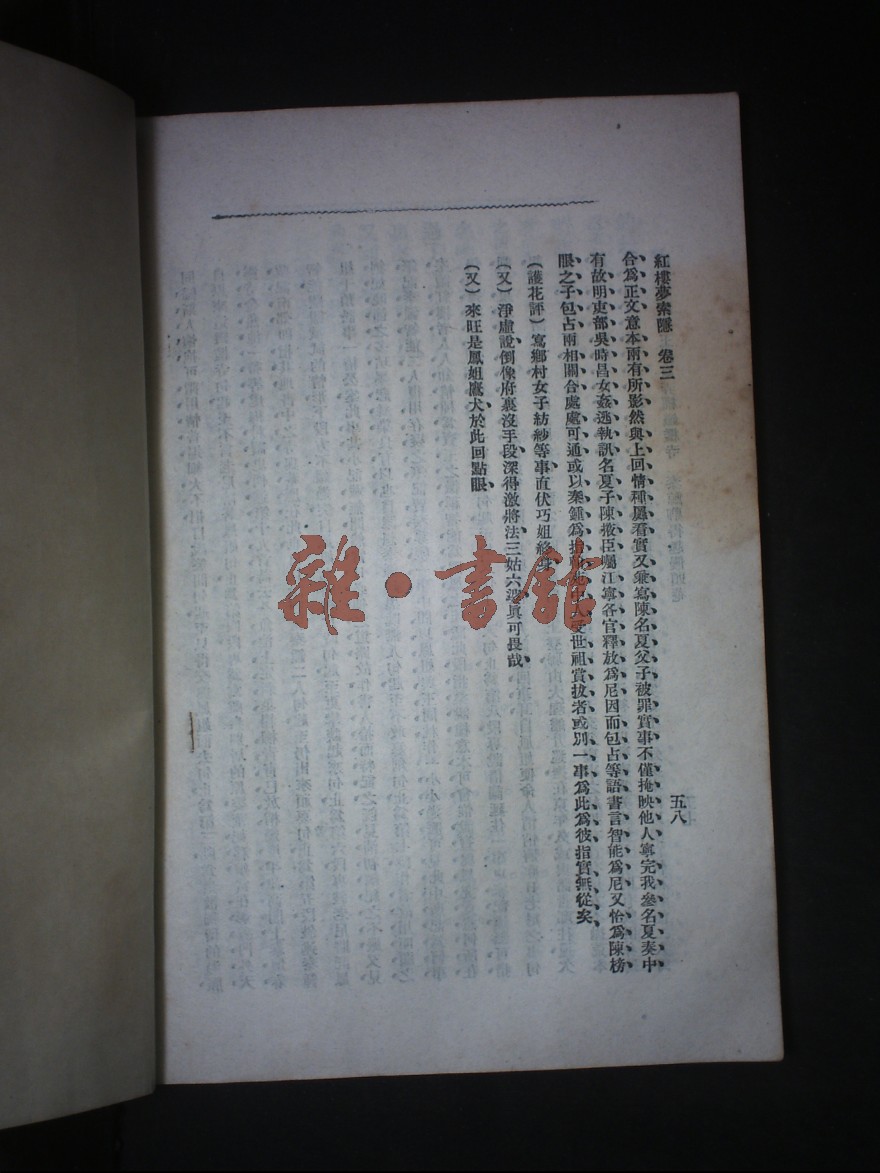 紅樓夢索隱 卷三 五八
合爲正文意本兩有所影然與上回情種屬看實又兼寫陳名夏父子被罪實事不僅掩映他人寧完我參名夏奏中
有故明吏部吳時昌女姦逃執訊名夏子陳掖臣囑江寧各官釋放爲尼因而包占等語書言智能爲尼又恰爲陳榜
眼之子包占兩相關合處處可通或以秦鍾爲指 中 受世祖賞拔者或別一事爲此爲彼指實無從矣
(護花評) 寫鄉村女子紡紗等事直伏巧姐終身
(又) 淨虛說倒像府裏沒手段深得激將法三姑六婆眞可畏哉
(又) 來旺是鳳姐鷹犬於此回點眼
雜·書館